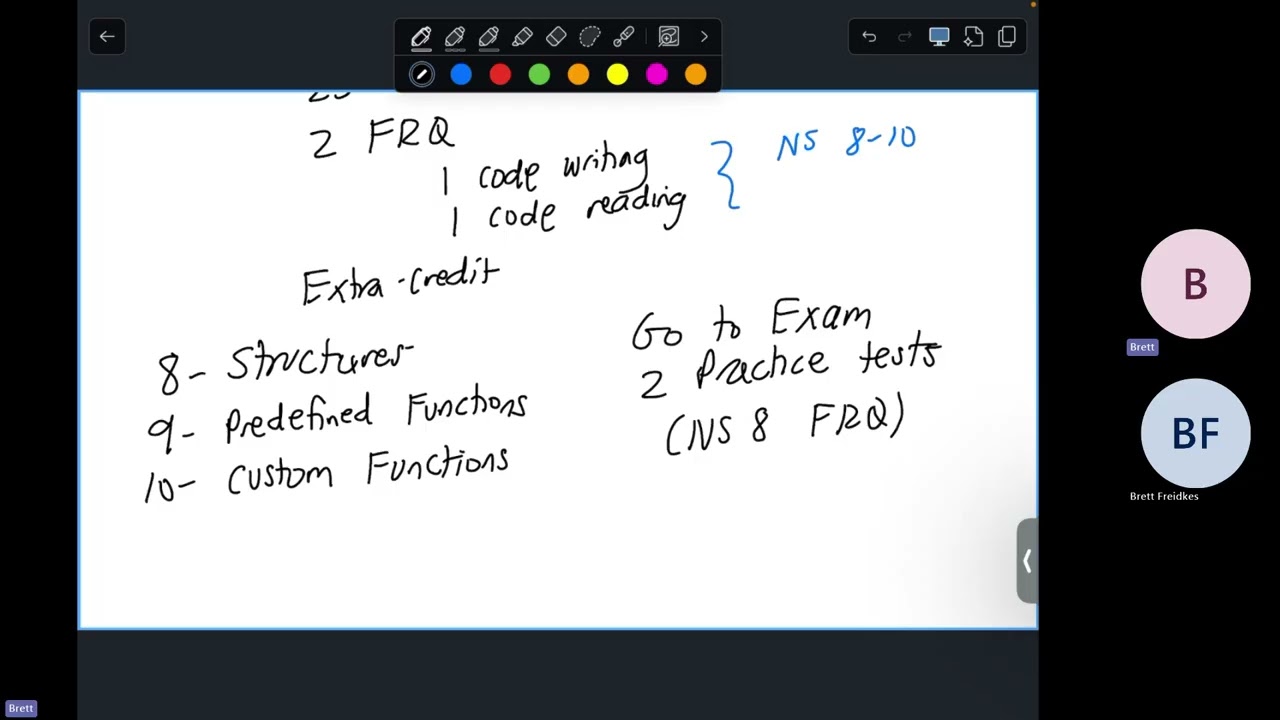 2 FRQ
1 code writing
1 code reading
NS 8-10
Extra-credit
8- Structures
9- Predefined Functions
10- Custom Functions
Go to Exam
2 Practice tests
(NS 8 FRQ)
B
Brett
BF
Brett Freidkes
Brett